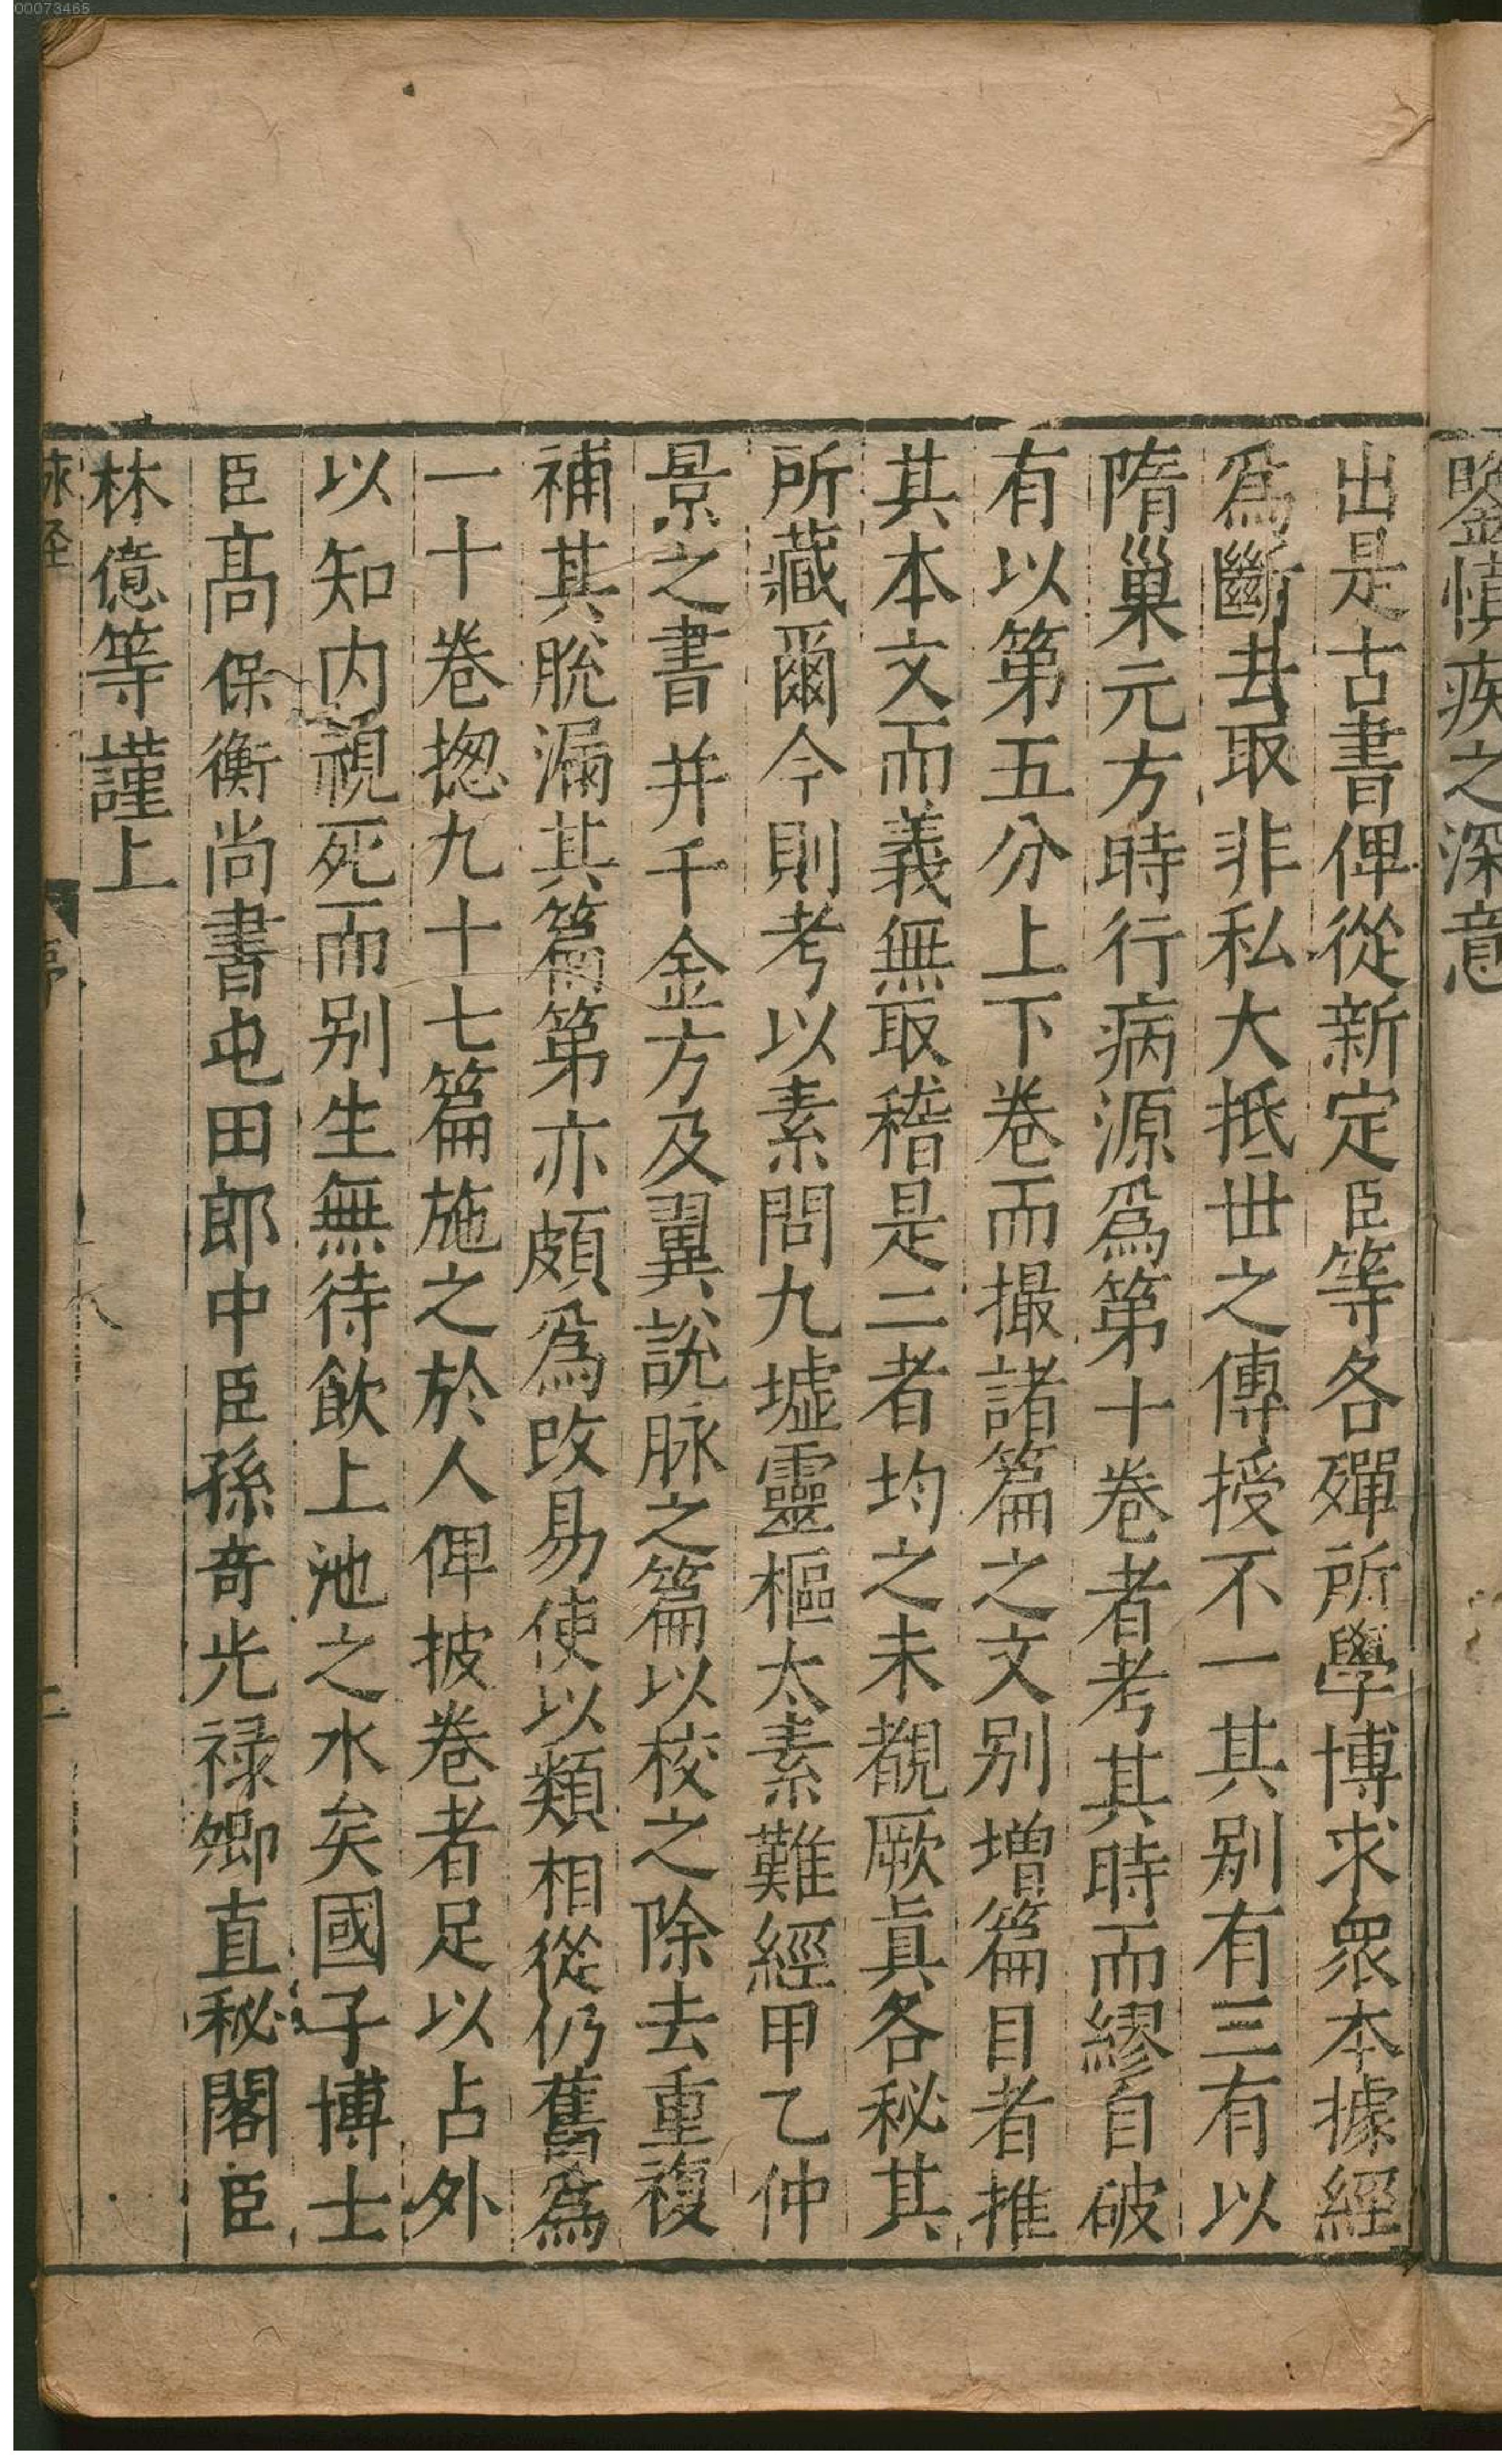 00073465
鑒慎疾之深意
出是古書俾從新定臣等各殫所學博求衆本據經
爲斷去取非私大抵世之傳授不一其别有三有以
隋巢元方時行病源爲第十卷者考其時而繆自破
有以第五分上下卷而撮諸篇之文别增篇目者推
其本文而義無取稽是二者均之未覩厥眞各秘其
所藏爾今則考以素問九墟靈樞太素難經甲乙仲
景之書并千金方及翼說脉之篇以校之除去重複
補其脫漏其篇第亦頗爲改易使以類相從仍舊爲
一十卷揔九十七篇施之於人俾披卷者足以占外
以知内視死而别生無待飲上池之水矣國子博士
臣高保衡尚書屯田郎中臣孫奇光禄卿直秘閣臣
林億等謹上
脉経